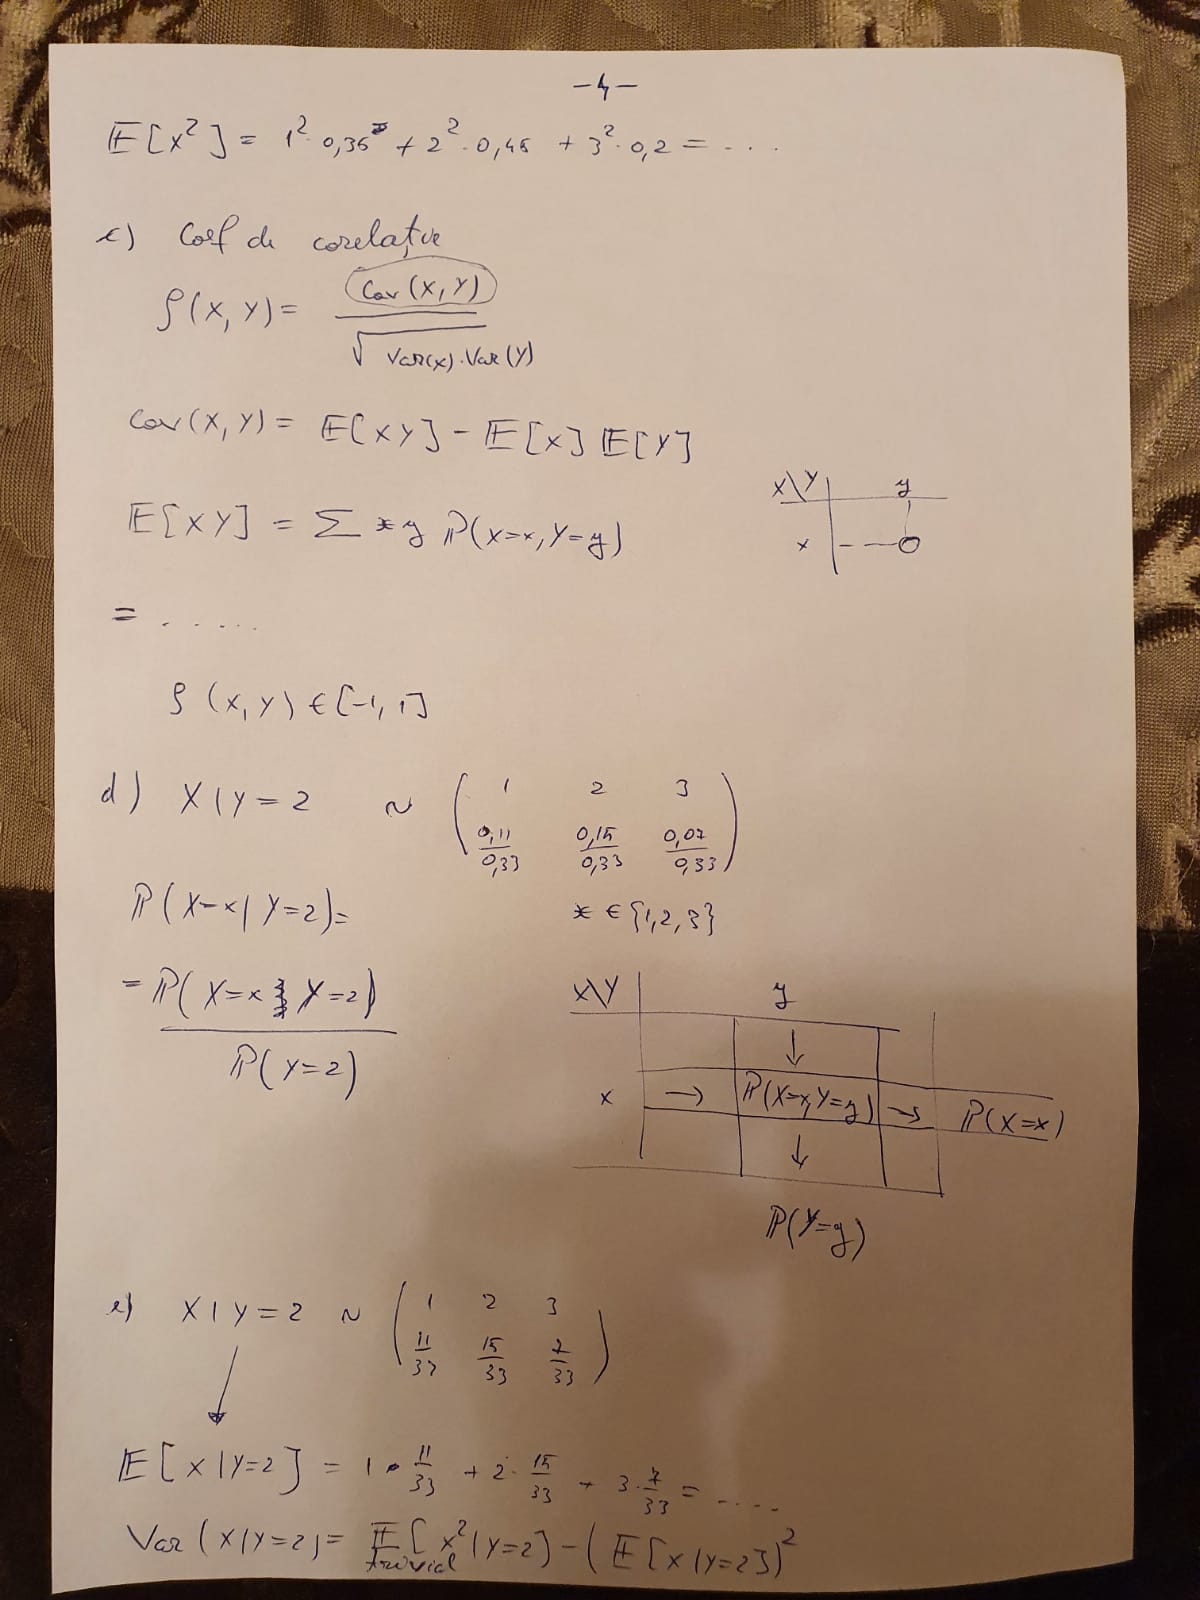 -4-
𝔼[X²] = 1²·0,35 + 2²·0,45 + 3²·0,2 = ....
c) Coef de corelație
ρ(X, Y) = Cov(X, Y) / √Var(X)·Var(Y)
Cov(X, Y) = 𝔼[XY] - 𝔼[X] 𝔼[Y]
X\Y | y
𝔼[XY] = Σ xy ℙ(X=x, Y=y)
x
= .....
ρ(X, Y) ∈ [-1, 1]
d) X|Y=2 ~ ( 1 2 3
0,11/0,33 0,15/0,33 0,07/0,33 )
ℙ(X=x|Y=2) =
x ∈ {1,2,3}
= ℙ(X=x, Y=2) / ℙ(Y=2)
X\Y | y
↓
x → ℙ(X=x, Y=y) → ℙ(X=x)
↓
ℙ(Y=y)
e) X|Y=2 ~ ( 1 2 3
11/33 15/33 7/33 )
𝔼[X|Y=2] = 1·11/33 + 2·15/33 + 3·7/33 = ....
Var(X|Y=2) = 𝔼[X²|Y=2] - (𝔼[X|Y=2])²
trivial